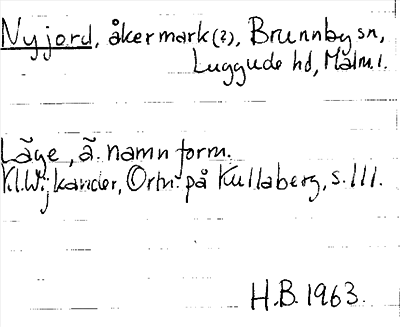 Nyjord, åkermark(?), Brunnby sn,
Luggude hd, Malm.l.
Läge, ä. namnform.
Kl. Wijkander, Ortn. på Kullaberg, s. 111.
H.B. 1963.